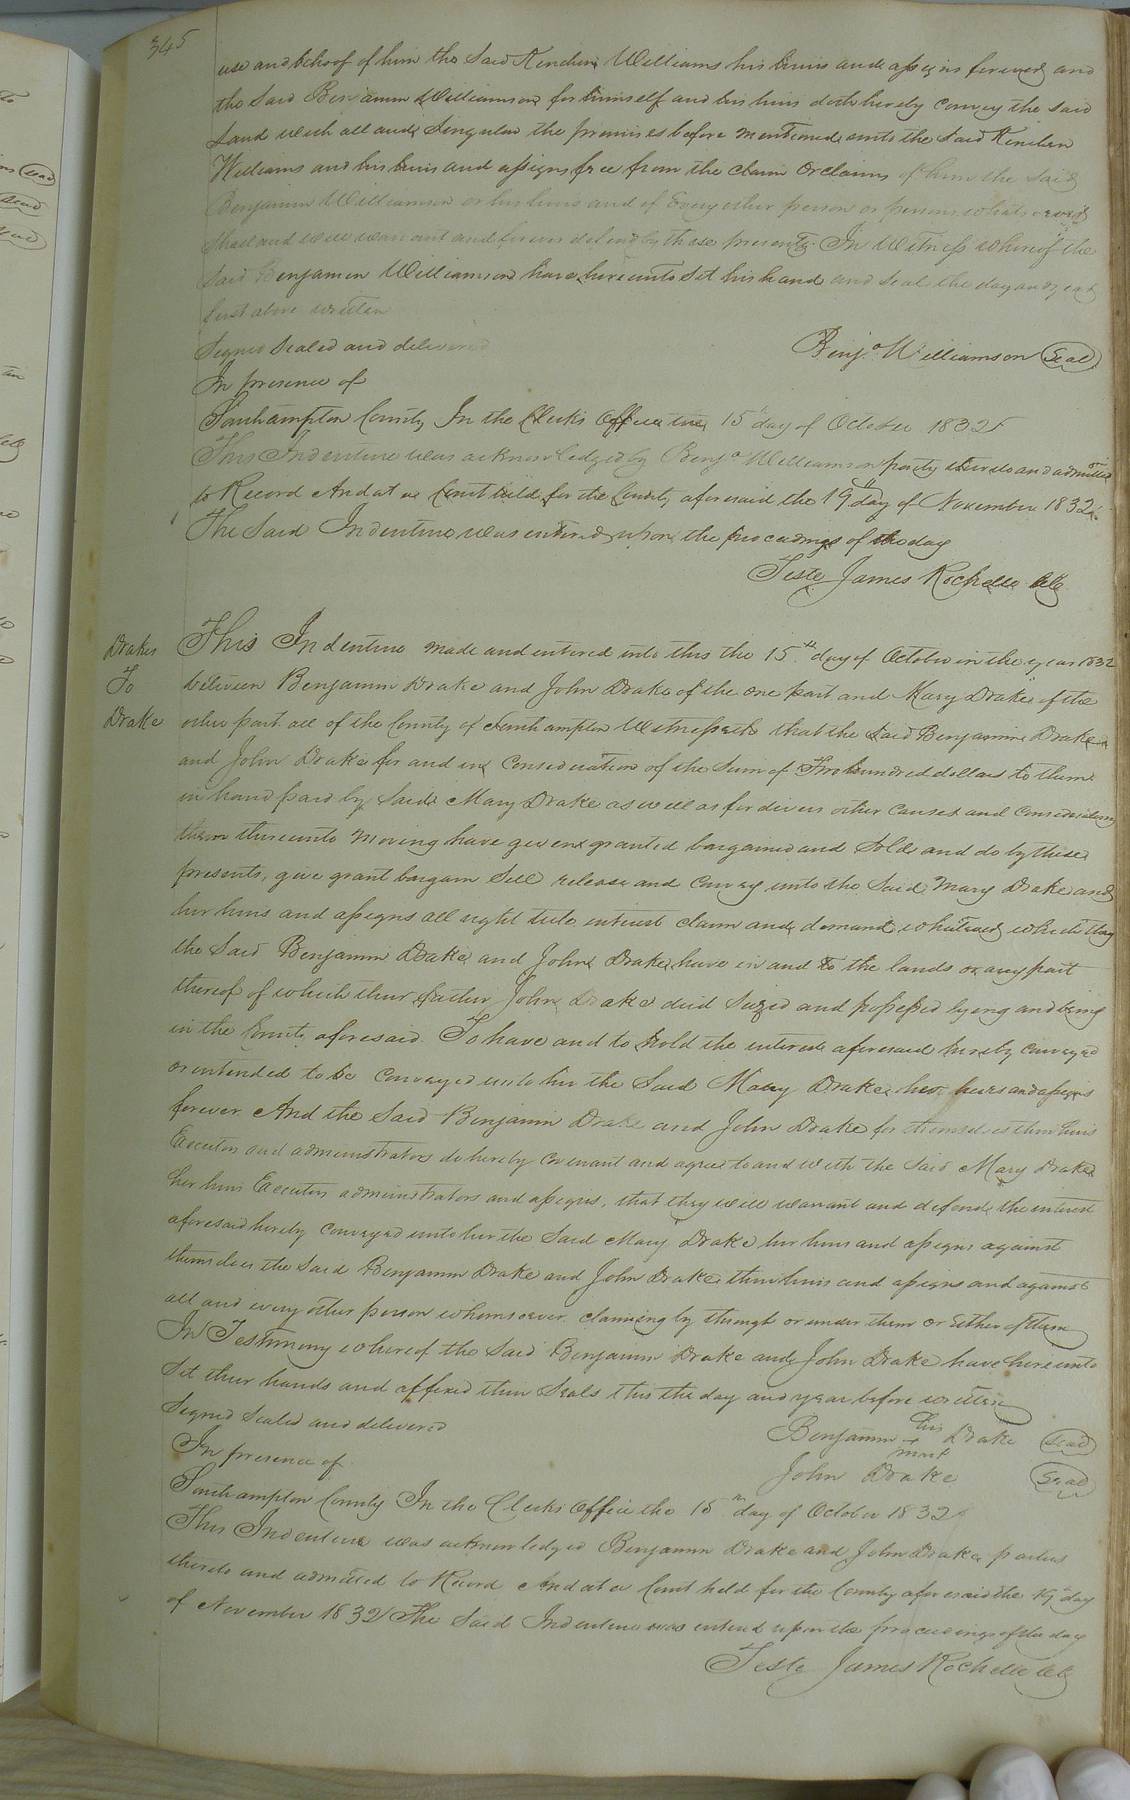 345
use and behoof of him the Said Kinchin Williams his heirs and assigns forever and
the Said Benjamin Williamson for himself and his heirs doth hereby convey the said
Land with all and Singular the premises before mentioned unto the Said Kinchin
Williams and his heirs and assigns free from the claim or claims of him the Said
Benjamin Williamson or his heirs and of Every other person or persons whatsoever
Shall and will warrant and forever defend by these presents In Witness whereof the
Said Benjamin Williamson have hereunto Set his hand and Seal the day and year
first above written
Signed Sealed and delivered
In presence of
Benja Williamson Seal
Southampton County In the Clerks Office the 15th day of October 1832
This Indenture was acknowledged by Benja Williamson party thereto and admitted
to Record And at a Court held for the County aforesaid the 19th day of November 1832
The Said Indenture was entered upon the proceedings of the day
Teste James Rochelle Clk
Drakes
To
Drake
This Indenture made and entered into this the 15th day of October in the year 1832
between Benjamin Drake and John Drake of the one part and Mary Drake of the
other part all of the County of Southampton Witnesseth that the Said Benjamin Drake
and John Drake for and in Consideration of the Sum of Two hundred dollars to them
in hand paid by Said Mary Drake as well as for divers other Causes and Considerations
them thereunto moving have given granted bargained and Sold and do by these
presents, give grant bargain Sell release and Convey unto the Said Mary Drake and
her heirs and assigns all right title interest claim and demand whatsoever which they
the Said Benjamin Drake and John Drake have in and to the lands or any part
thereof of which their father John Drake died Siezed and possessed lying and being
in the County aforesaid. To have and to hold the interest aforesaid hereby conveyed
or intended to be Conveyed unto her the Said Mary Drake her heirs and assigns
forever And the Said Benjamin Drake and John Drake for themselves their heirs
Executors and administrators do hereby Covenant and agree to and with the Said Mary Drake
her heirs Executors administrators and assigns, that they will warrant and defend the interest
aforesaid hereby Conveyed unto her the Said Mary Drake her heirs and assigns against
themselves the Said Benjamin Drake and John Drake their heirs and assigns and against
all and every other person whomsoever claiming by through or under them or Either of them
In Testimony whereof the Said Benjamin Drake and John Drake have hereunto
Set their hands and affixed their Seals this the day and year before written
Signed Sealed and delivered
In presence of
Benjamin his + mark Drake Seal
John Drake Seal
Southampton County In the Clerks Office the 15th day of October 1832
This Indenture was acknowledged Benjamin Drake and John Drake parties
thereto and admitted to Record And at a Court held for the County aforesaid the 19th day
of November 1832 The Said Indenture was entered upon the proceedings of the day
Teste James Rochelle Clk